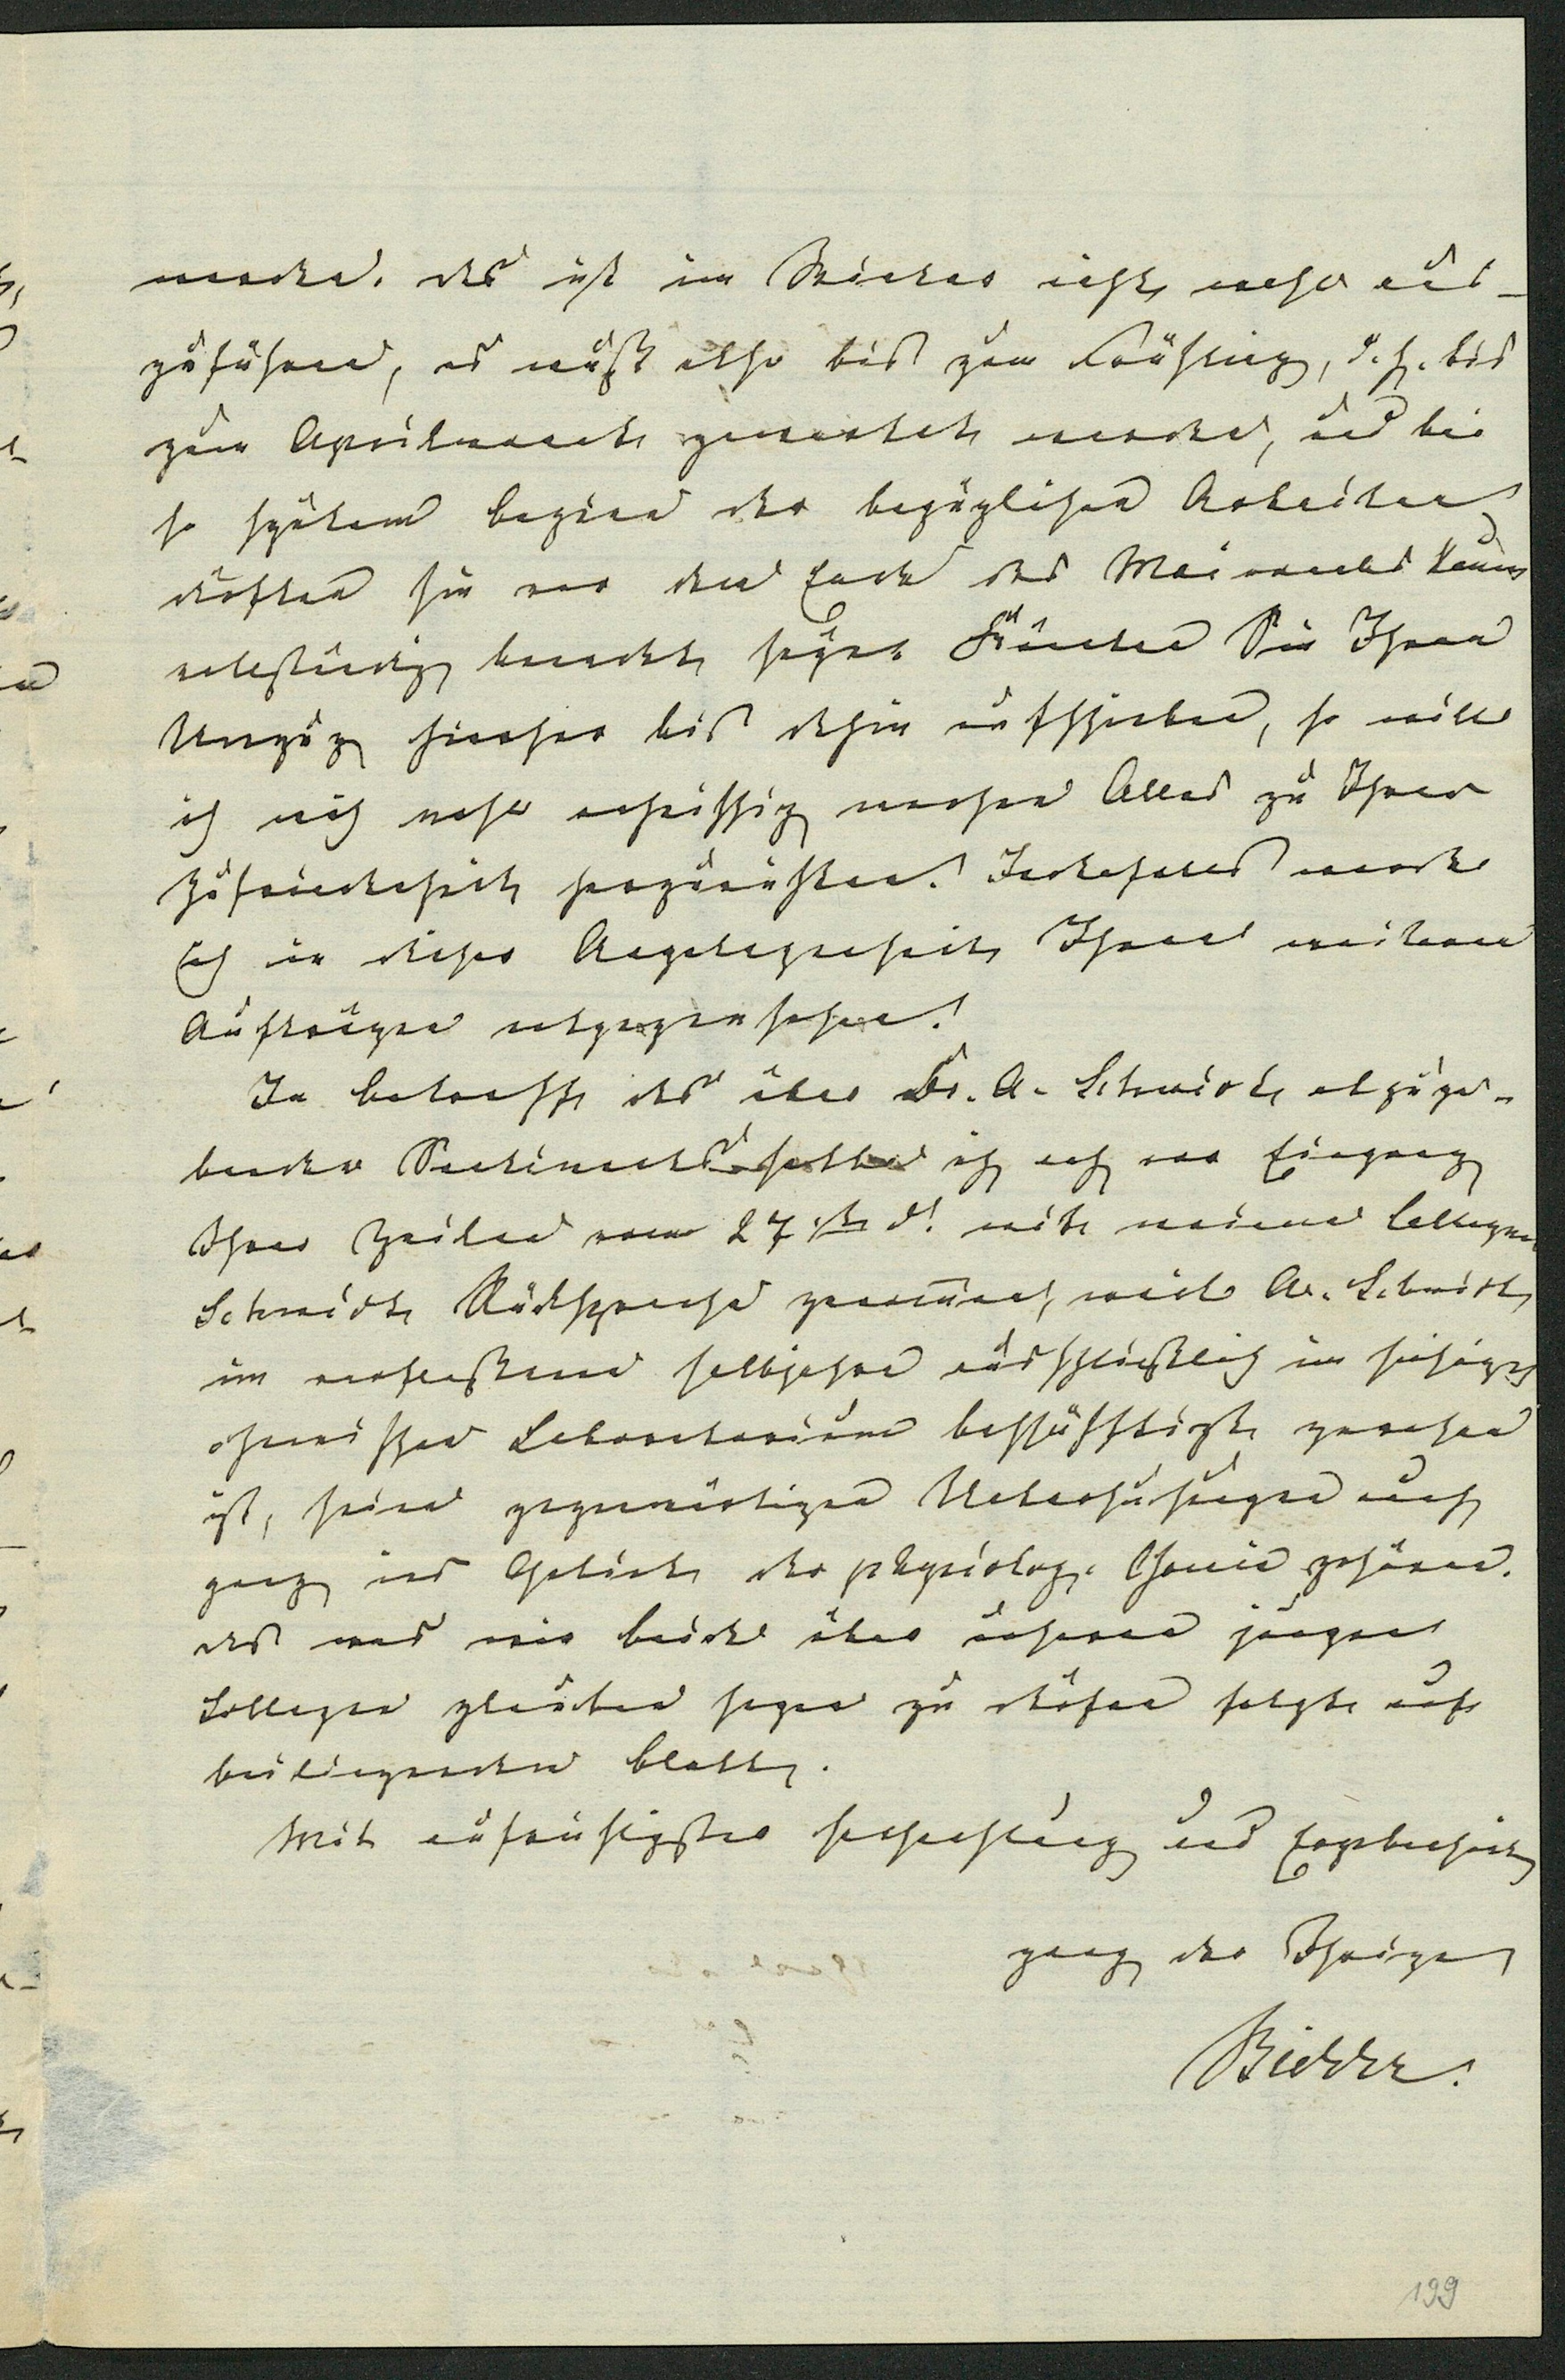 werden. Das ist im Winter nicht mehr aus-
zuführen, es muß also bis zum Frühling, d. h. bis
zum Aprilmonat gewartet werden, und bei
so spätem Beginn der bezüglichen Arbeiten
dürften sie vor dem Ende des Maimonats kaum
vollständig beendet seyn. Könnten Sie Ihren
Umzug hierher bis dahin aufschieben, so will
ich mich sehr anheischig machen Alles zu Ihrer
Zufriedenheit herzurichten. Jedenfalls werde
ich in dieser Angelegenheit Ihren weiteren
Aufträgen entgegensehen.
In Betreff des über Dr. A. Schmidt abzuge-
benden Sentiments hatte ich noch vor Eingang
Ihrer Zeilen vom 27sten d. mit meinem Collegen
Schmidt Rücksprache genommen, weil A. Schmidt
im verflossenen Halbjahre ausschließlich im hiesigen
chemischen Laboratorium beschäftigt gewesen
ist, seine gegenwärtigen Untersuchungen auch
ganz ins Gebiet der physiolog. Chemie gehören.
Das was wir beide über unseren jungen
Collegen glauben sagen zu dürfen folgt auf
beiliegendem Blatt.
Mit aufrichtigster Hochachtung und Ergebenheit
ganz der Ihrige
Bidder.
199